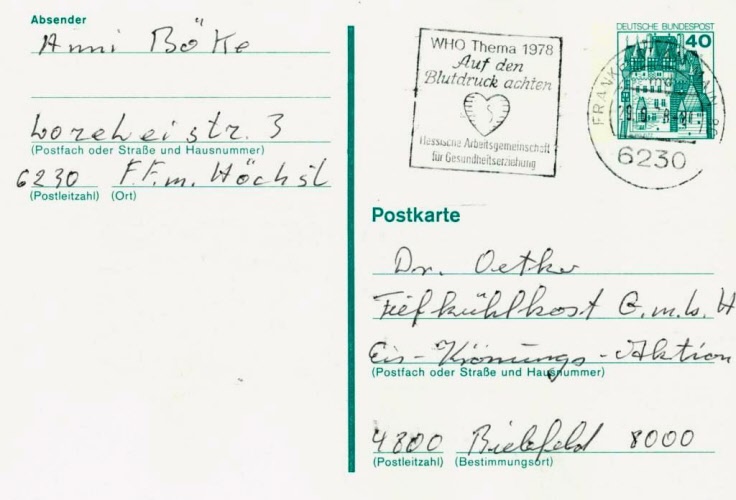 Absender
Anni Böke
Loreleistr. 3
(Postfach oder Straße und Hausnummer)
6230 F.F.m. Höchst
(Postleitzahl) (Ort)
WHO Thema 1978
Auf den
Blutdruck achten
Hessische Arbeitsgemeinschaft
für Gesundheitserziehung
DEUTSCHE BUNDESPOST
40
6230
Postkarte
Dr. Oetker
Tiefkühlkost G.m.b.H
Eis-Krönungs-Aktion
(Postfach oder Straße und Hausnummer)
4800 Bielefeld 8000
(Postleitzahl) (Bestimmungsort)